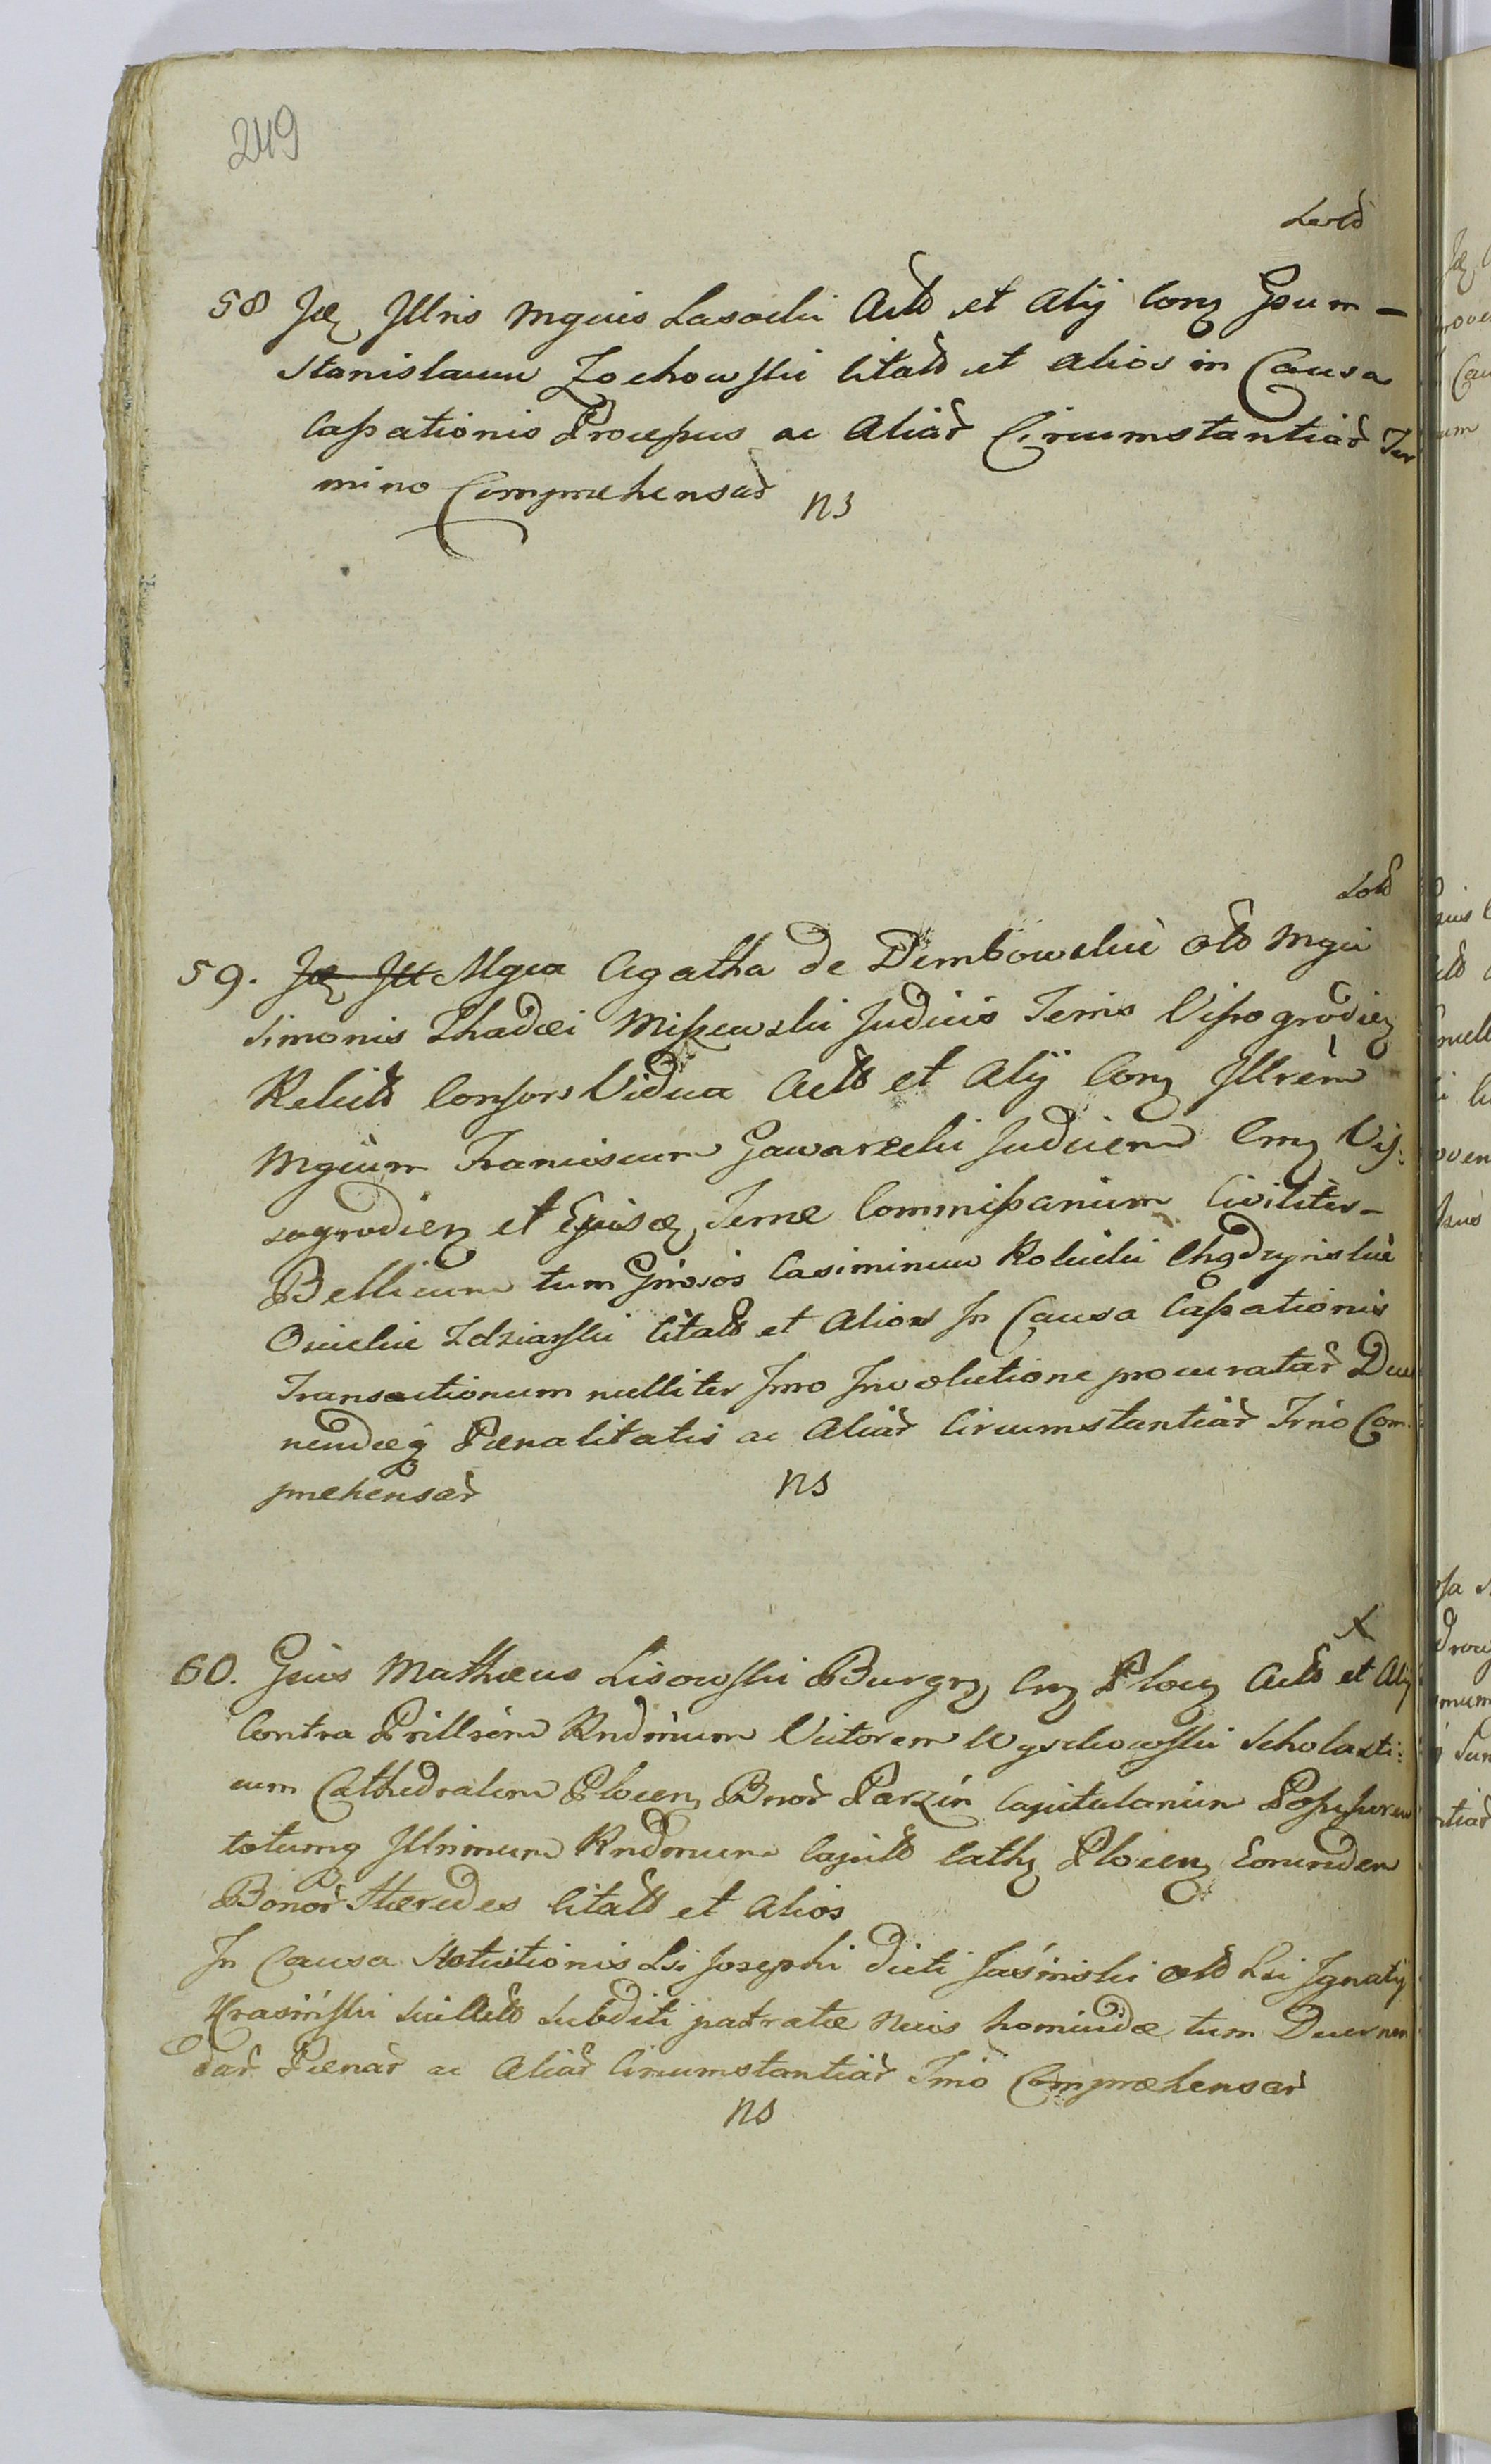 249
58 Jłł Jllris Mgcus Lasocki Actt et Alij Con Gsum -
Stanislaum Zochowski Citatt et alios in Causa
Cassationis Processus ac Aliar Circumstantiar Ter
mino Comprehensar ns
59. Mgca Agatha de Dembowskie olt Mgci
Simonis Thadæi Miszewski Judicis Terris Vissogrodien
Relict Consors Vidua Act et Alij Con Jllrem
Mgcum Franciscum Gawarecki Judicem Cren Vis:
sogrodien et Ejusq Terræ Commissarium Civiliter-
Bellicum tum Grosos Casimirum Rokicki Chądzynskie
Osiecki Zdziarski Citatt et Alios In Causa Cassationis
Transactionum nulliter Imo Involutione procuratar Decer
nendæq Pænalitatis ac Aliar Circumstantiar Trno Com:
prehensar ns
60. Gsus Mathæus Lisowski Burgr Cren Ploc Actt et Alij
Contra Prillrem Rndmum Victorem Scholasti:
cum Cathedralem Plocen Bnor Parzin Capitularium Possessorem
totumq Jllrimum Rndmum Capitt Cath Plocen Eorunden
Bonor Hæredes Citatt et Alios
In Causa Statuitionis Lsi Josephi dicti Jasinski olt Lsi Ignatij
Krasinski Subditi patratæ Necis homicidæ tum Decernen
dar Pænar ac Aliar Circumstantiar Trno Comprehensar
ns